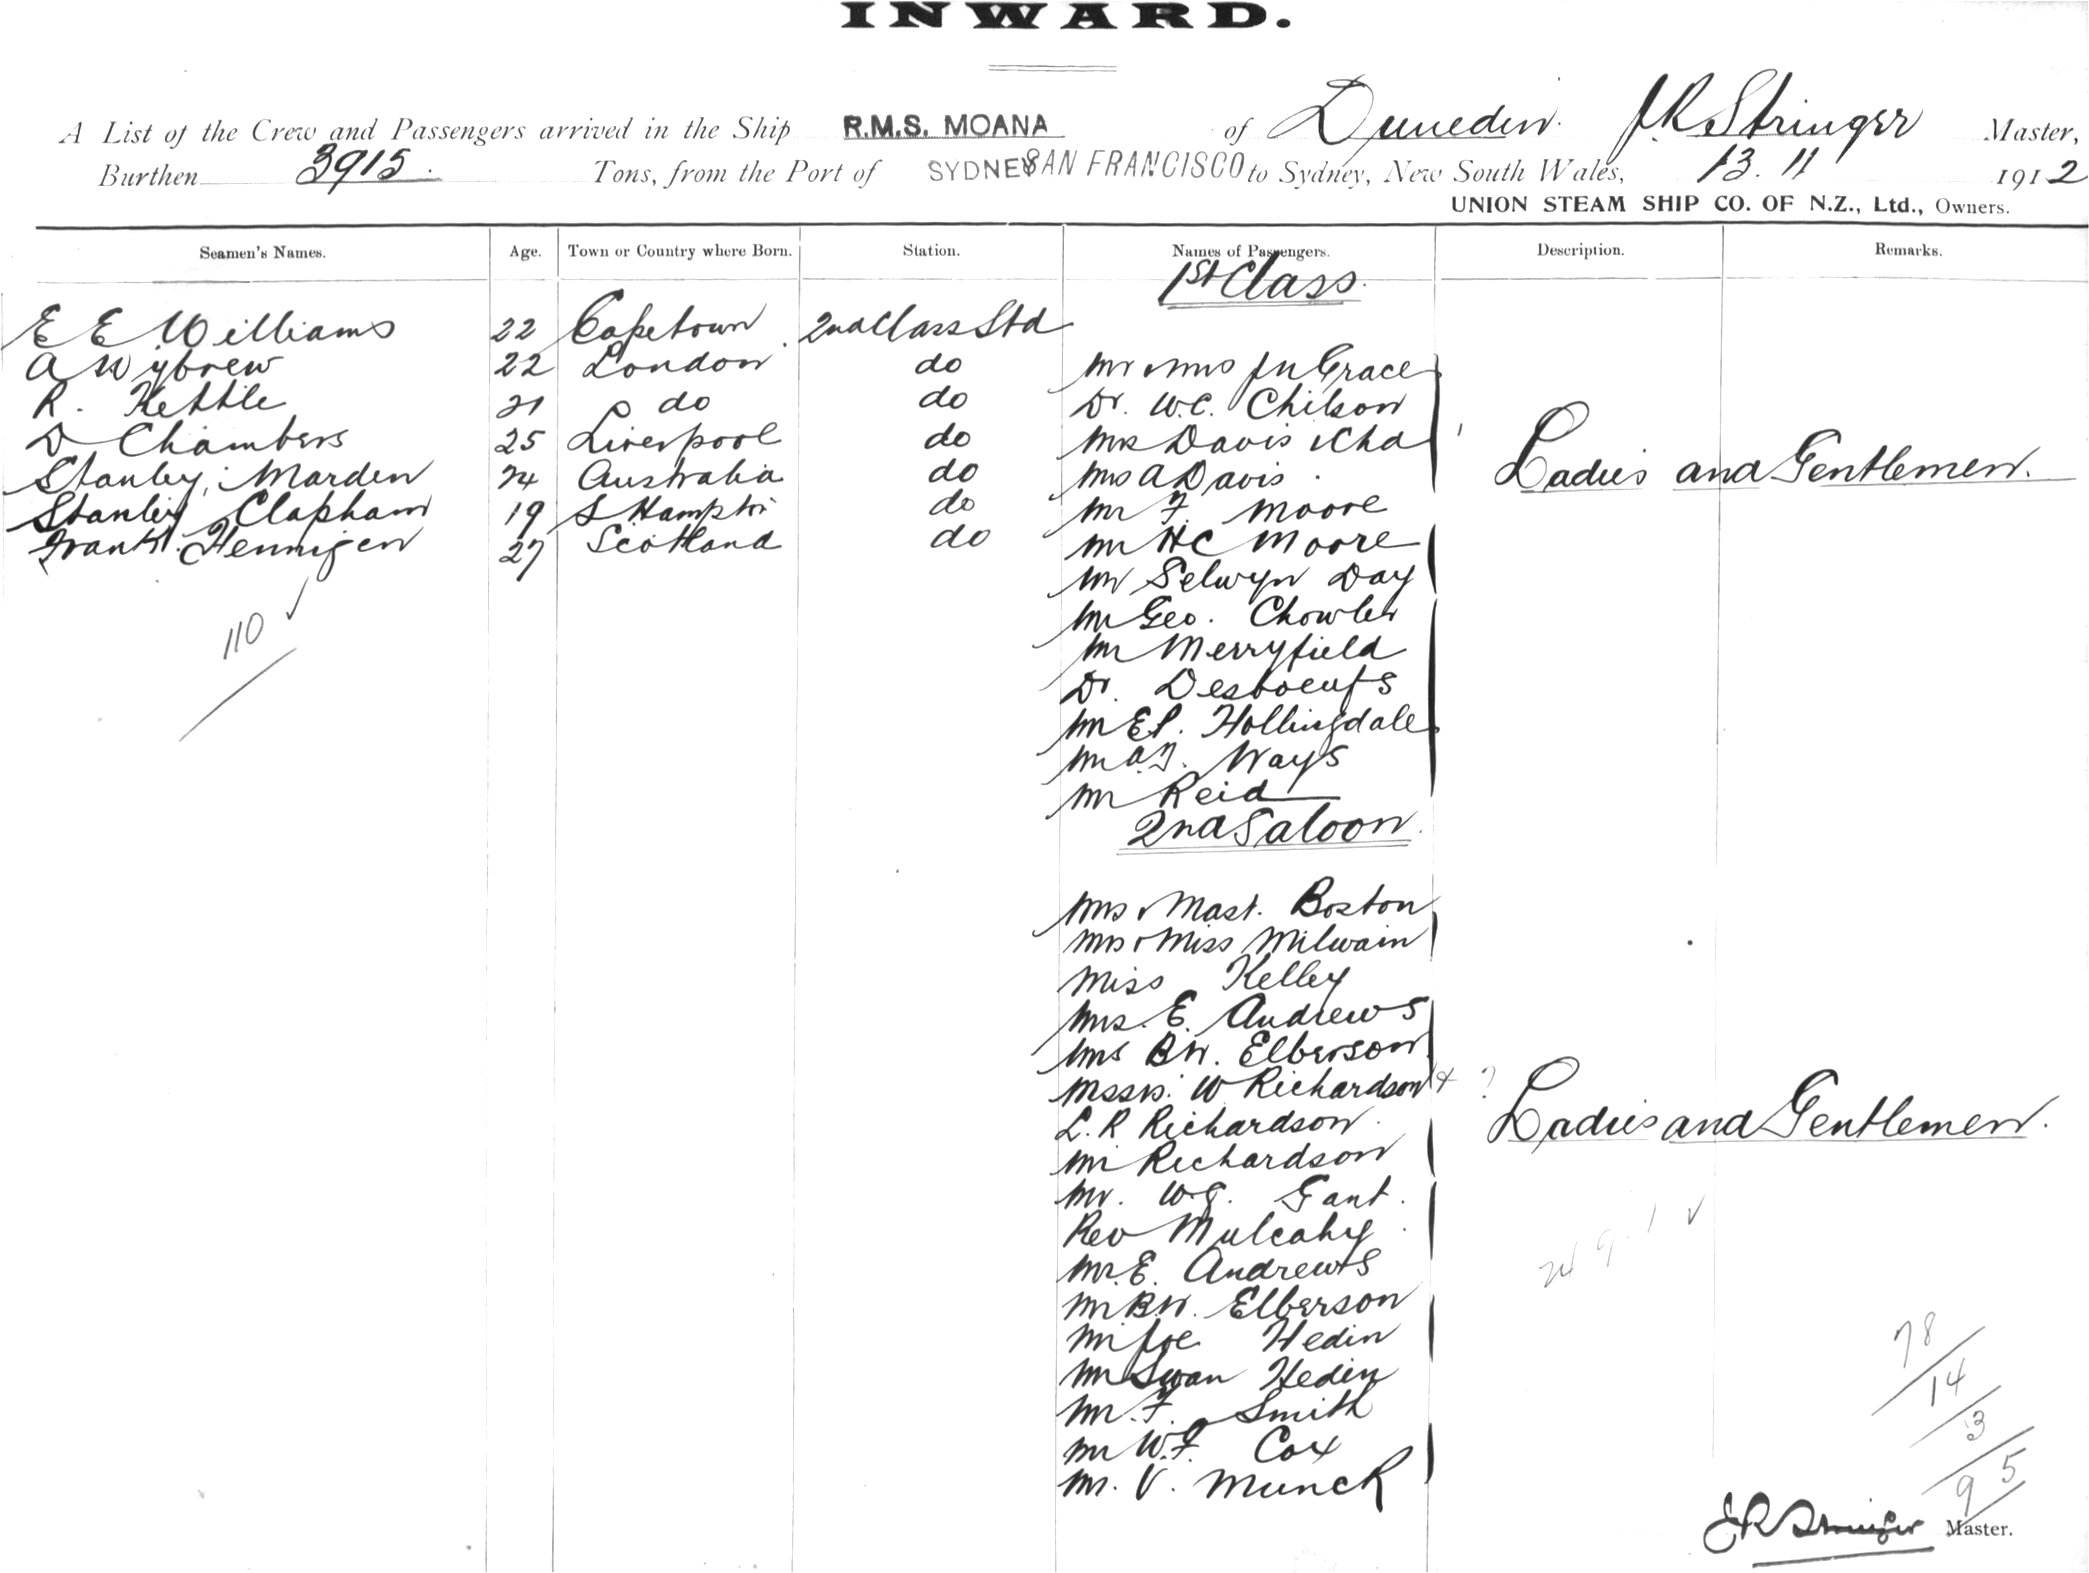 INWARD.
A List of the Crew and Passengers arrived in the Ship R.M.S. MOANA of Dunedin. J.R. Stringer Master,
Burthen 3915. Tons, from the Port of SYDNEY SAN FRANCISCO to Sydney, New South Wales, 13. 11 1912
UNION STEAM SHIP CO. OF N.Z., Ltd., Owners.
Seamen's Names. Age. Town or Country where Born. Station. Names of Passengers. Description. Remarks.
1st Class.
E E Williams 22 Capetown 2nd Class Std
A Wybrew 22 London do
R. Kettle 21 do do
D Chambers 25 Liverpool do
Stanley Marden 24 Australia do
Stanley Clapham 19 S Hampton do
Frank Hennigen 27 Scotland do
110 ✓
Mr & Mrs J N Grace
Dr. W.C. Chilson
Mrs Davis & Chd
Mrs A Davis
Mr F. Moore
Mr H C Moore
Mr Selwyn Day
Mr Geo. Chowler
Mr Merryfield
Dr. Desboeufs
Mr E P. Hollingdale
Mr A.J. Ways
Mr Reid
Ladies and Gentlemen.
2nd Saloon.
Mrs & Mast. Boston
Mrs & Miss Milwain
Miss Kelley
Mrs. E. Andrews
Mrs B W. Elberson
Messrs. W Richardson + ?
L. R Richardson
Mr Richardson
Mr. W.G. Gant.
Rev Mulcahy
Mr. E. Andrews
Mr B W. Elberson
Mr Joe Hedin
Mr Swan Hedin
Mr. F. Smith
Mr W. F. Cox
Mr. V. Munck
Ladies and Gentlemen.
24 9 - 1 ✓
78
14
3
95
J R Stringer Master.